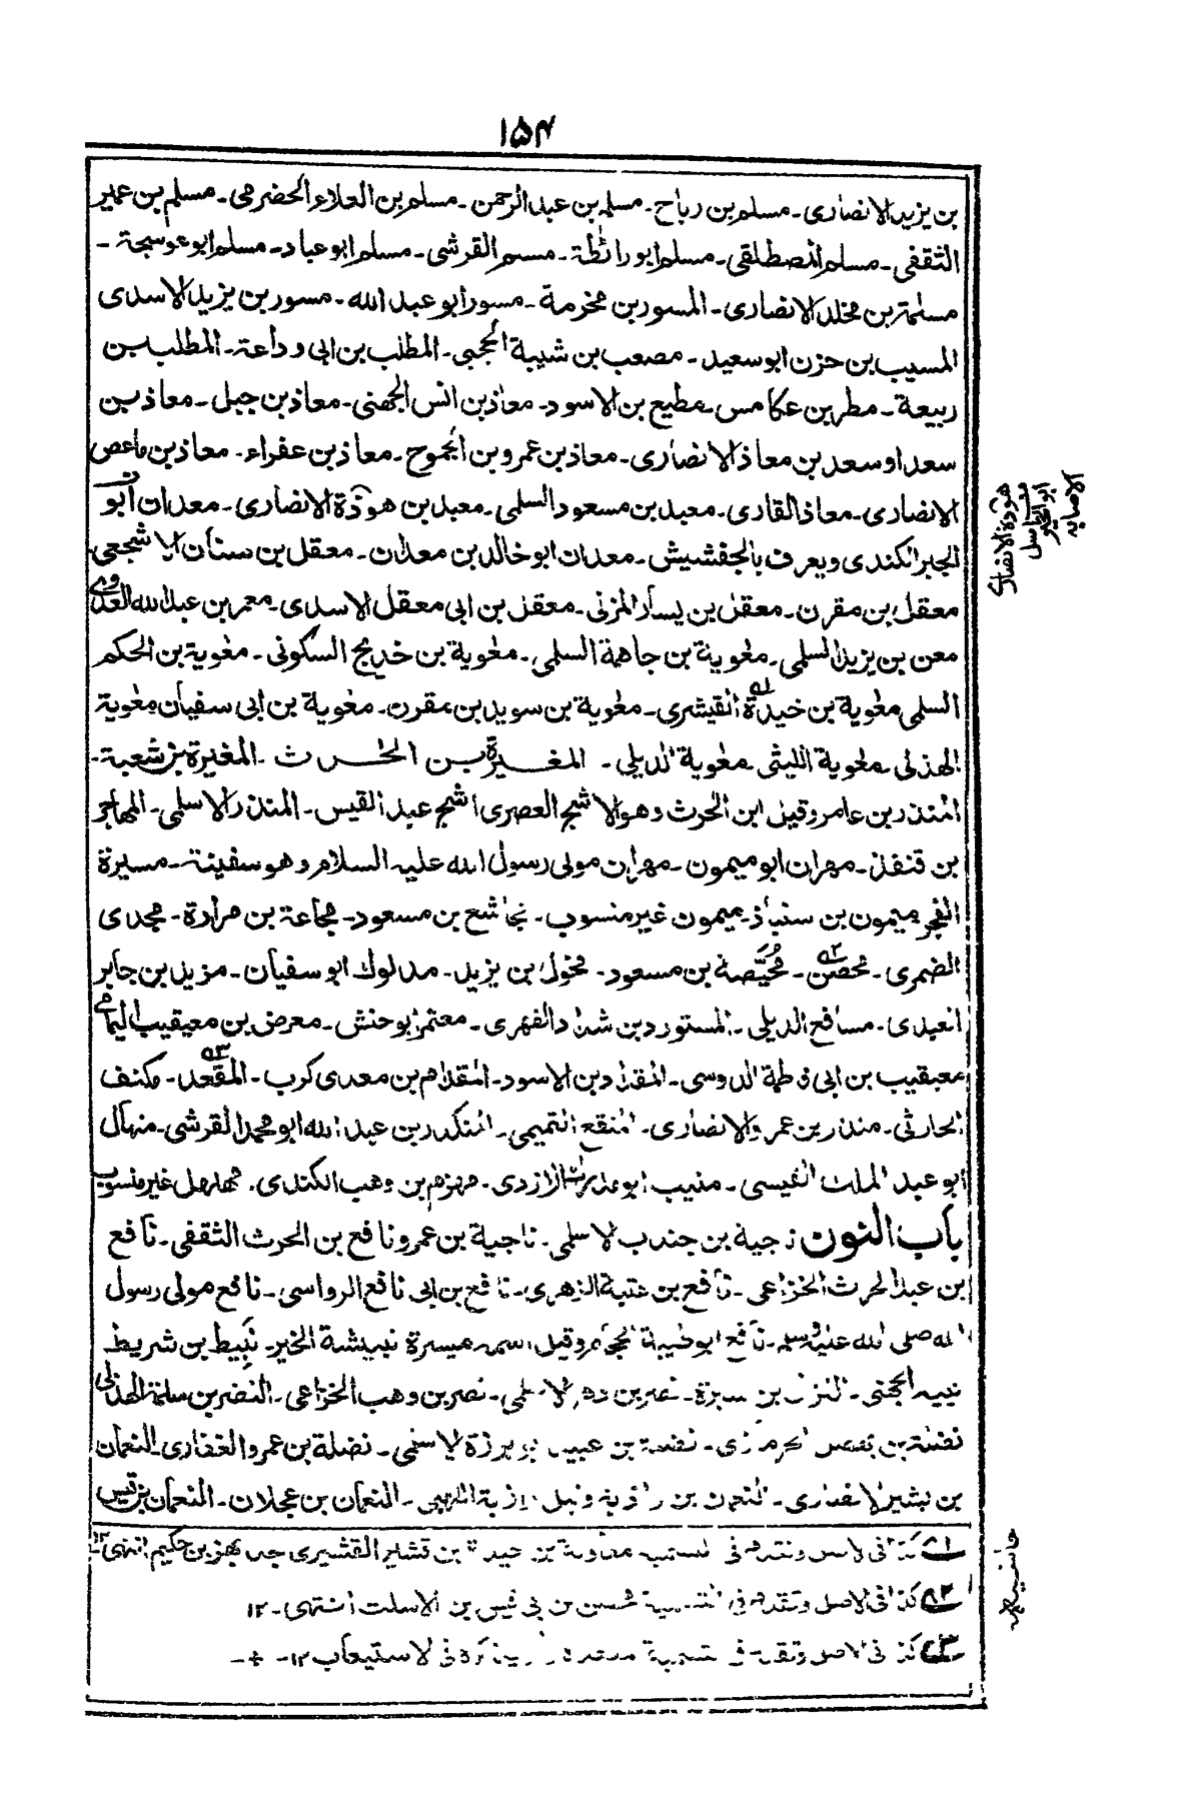 ١٥٤
بن يزيد الانصارى۔ مسلم بن رباح۔ مسلم بن عبد الرحمن۔ مسلم بن العلاء الحضرمى۔ مسلم بن عمير
الثقفى۔ مسلم المصطلقى۔ مسلم ابو رائطة۔ مسلم القرشى۔ مسلم ابو عباد۔ مسلم ابو عوسجة۔
مسلمة بن مخلد الانصارى۔ المسور بن مخرمة۔ مسور ابو عبد الله۔ مسور بن يزيد الاسدى
المسيب بن حزن ابو سعيد۔ مصعب بن شيبة الحجبى۔ المطلب بن ابى وداعة۔ المطلب بن
ربيعة۔ مطر بن عكامس۔ مطيع بن الاسود۔ معاذ بن انس الجهنى۔ معاذ بن جبل۔ معاذ بن
سعد او سعد بن معاذ الانصارى۔ معاذ بن عمرو بن الجموح۔ معاذ بن عفراء۔ معاذ بن ماعص
الانصارى۔ معاذ القارى۔ معبد بن مسعود السلمى۔ معبد بن هوذة الانصارى۔ معدان ابو
الجبر الكندى ويعرف بالجفشيش۔ معدان ابو خالد بن معدان۔ معقل بن سنان الاشجعى
معقل بن مقرن۔ معقل بن يسار المزنى۔ معقل بن ابى معقل الاسدى۔ معمر بن عبد الله العدوى
معن بن يزيد السلمى۔ معٰوية بن جاهمة السلمى۔ معٰوية بن خديج السكونى۔ معٰوية بن الحكم
السلمى معٰوية بن خيدة القيشرى۔ معٰوية بن سويد بن مقرن۔ معٰوية بن ابى سفيان معٰوية
الهذلى۔ معٰوية الليثى۔ معٰوية الديلى۔ المغيرة بن الحٰرث۔ المغيرة بن شعبة۔
المنذر بن عامر وقيل ابن الحٰرث وهو الاشج العصرى اشج عبد القيس۔ المنذر الاسلمى۔ المهاجر
بن قنفذ۔ مهران ابو ميمون۔ مهران مولى رسول الله عليه السلام وهو سفينة۔ مسيرة
الفجر ميمون بن سنباذ۔ ميمون غير منسوب۔ مجاشع بن مسعود۔ مجاعة بن مرارة۔ مجدى
الضمرى۔ محصن۔ مُحيَّصة بن مسعود۔ مخول بن يزيد۔ مدلوك ابو سفيان۔ مزيد بن جابر
العبدى۔ مسافع الديلى۔ المستورد بن شداد الفهرى۔ معتمر ابو حنش۔ معرض بن معيقيب اليمامى
معيقيب بن ابى فاطمة الدوسى۔ المقداد بن الاسود۔ المقدام بن معدى كرب۔ المقعد۔ مكنف
الحارثى۔ منذر بن عمرو الانصارى۔ المنقع التميمى۔ المنكدر بن عبد الله ابو محمد القرشى۔ منهال
ابو عبد الملك القيسى۔ منيب ابو مدرك الازدى۔ مهزم بن وهب الكندى۔ مهلهل غير منسوب
باب النون ناجية بن جندب الاسلمى۔ ناجية بن عمرو نافع بن الحرث الثقفى۔ نافع
ابن عبد الحرث الخزاعى۔ نافع بن عتبة الزهرى۔ نافع بن ابى نافع الرواسى۔ نافع مولى رسول
الله صلى الله عليه وسلم۔ نافع ابو طيبة الحجام وقيل اسمه ميسرة نبيشة الخير۔ نُبيط بن شريط
نبيه الجهنى۔ النزال بن سبرة۔ نصر بن دهر الاسلمى۔ نصر بن وهب الخزاعى۔ النضر بن سلمة الهذلى
نضلة بن عبيد ابو برزة الاسلمى۔ نضلة بن عمرو الغفارى۔ النعمان
بن بشير الانصارى۔ النعمان بن وقيل النعمان بن عجلان۔ النعمان بن قيس
١ كذا فى الاصل وتقدم فى التسمية معاوية بن حيدة بن قشير القشيرى جد بهز بن حكيم انتهى ١٢
٢ كذا فى الاصل وتقدم فى التسمية محصن بن ابى قيس بن الاسلت انتهى۔ ١٢
٣ كذا فى الاصل وتقدم فى التسمية فى الاستيعاب ١٢۔
هوذة الانصارى
ابو الخير
الاصابه